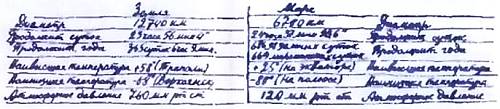 Земля Марс
Диаметр 12740 км 6780 км Диаметр
Продолжит. суток 23 часа 56 мин 24 часа 37 мин Продолжит. суток
Продолжит. года 365 суток 668 марсианских суток Продолжит. года
Наивысшая температура +58° (Триполи) +25° (на экваторе) Наивысшая температура
Наинизшая температура (Верхоянск) -88° (на полюсе) Наинизшая температура
Атмосферное давление 760 мм рт ст 120 мм рт ст Атмосферное давление